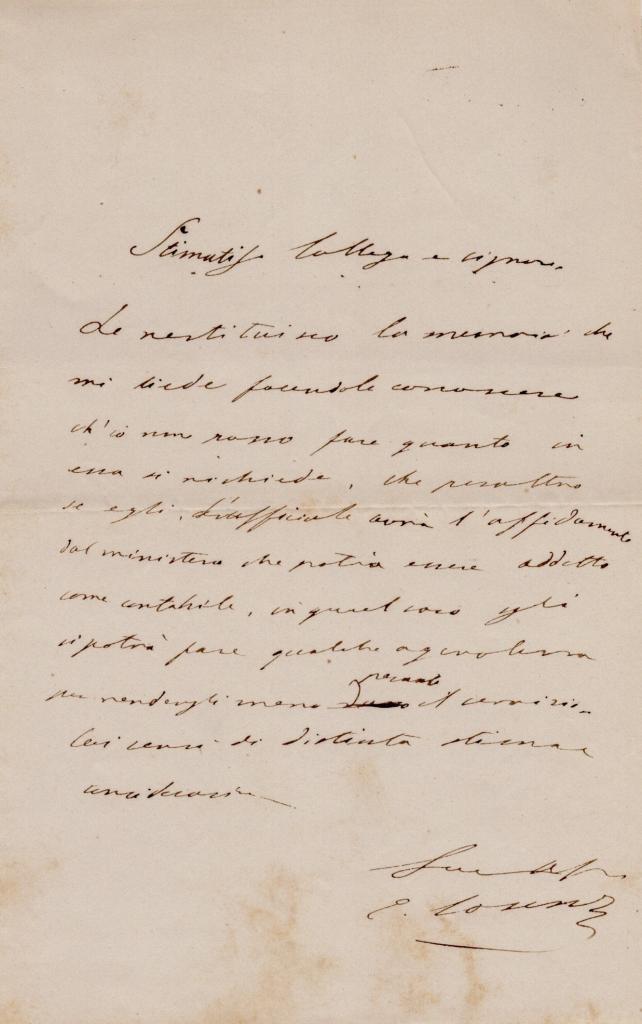 Stimatiss. Collega e signore.
Le restituisco la memoria che
mi diede facendole conoscere
ch'io non posso fare quanto in
essa si richiede, che peraltro
se egli, l'ufficiale avrà l'affidamento
dal ministero che potrà essere addetto
come contabile, in quel caso egli
si potrà fare qualche agevolezza
per rendergli meno pesante il servizio.
Coi sensi di distinta stima e
considerazione
E. Cosenz